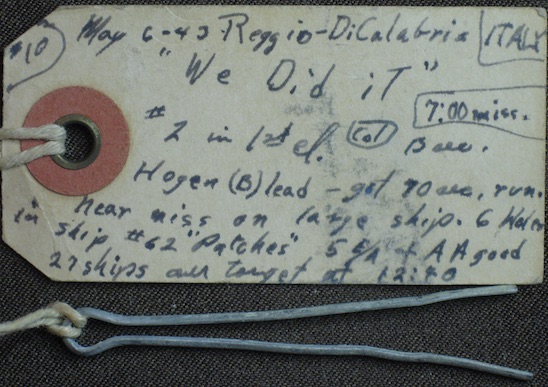 #10 May 6-43 Reggio-DiCalabria ITALY
"We Did iT"
7:00 miss.
#2 in 1st el.
Hogen (B) lead - got 70 sec. run.
near miss on large ship. 6 Holes
in ship #62 "Patches" 5 E/A + AA good
27 ships over target at 12:40